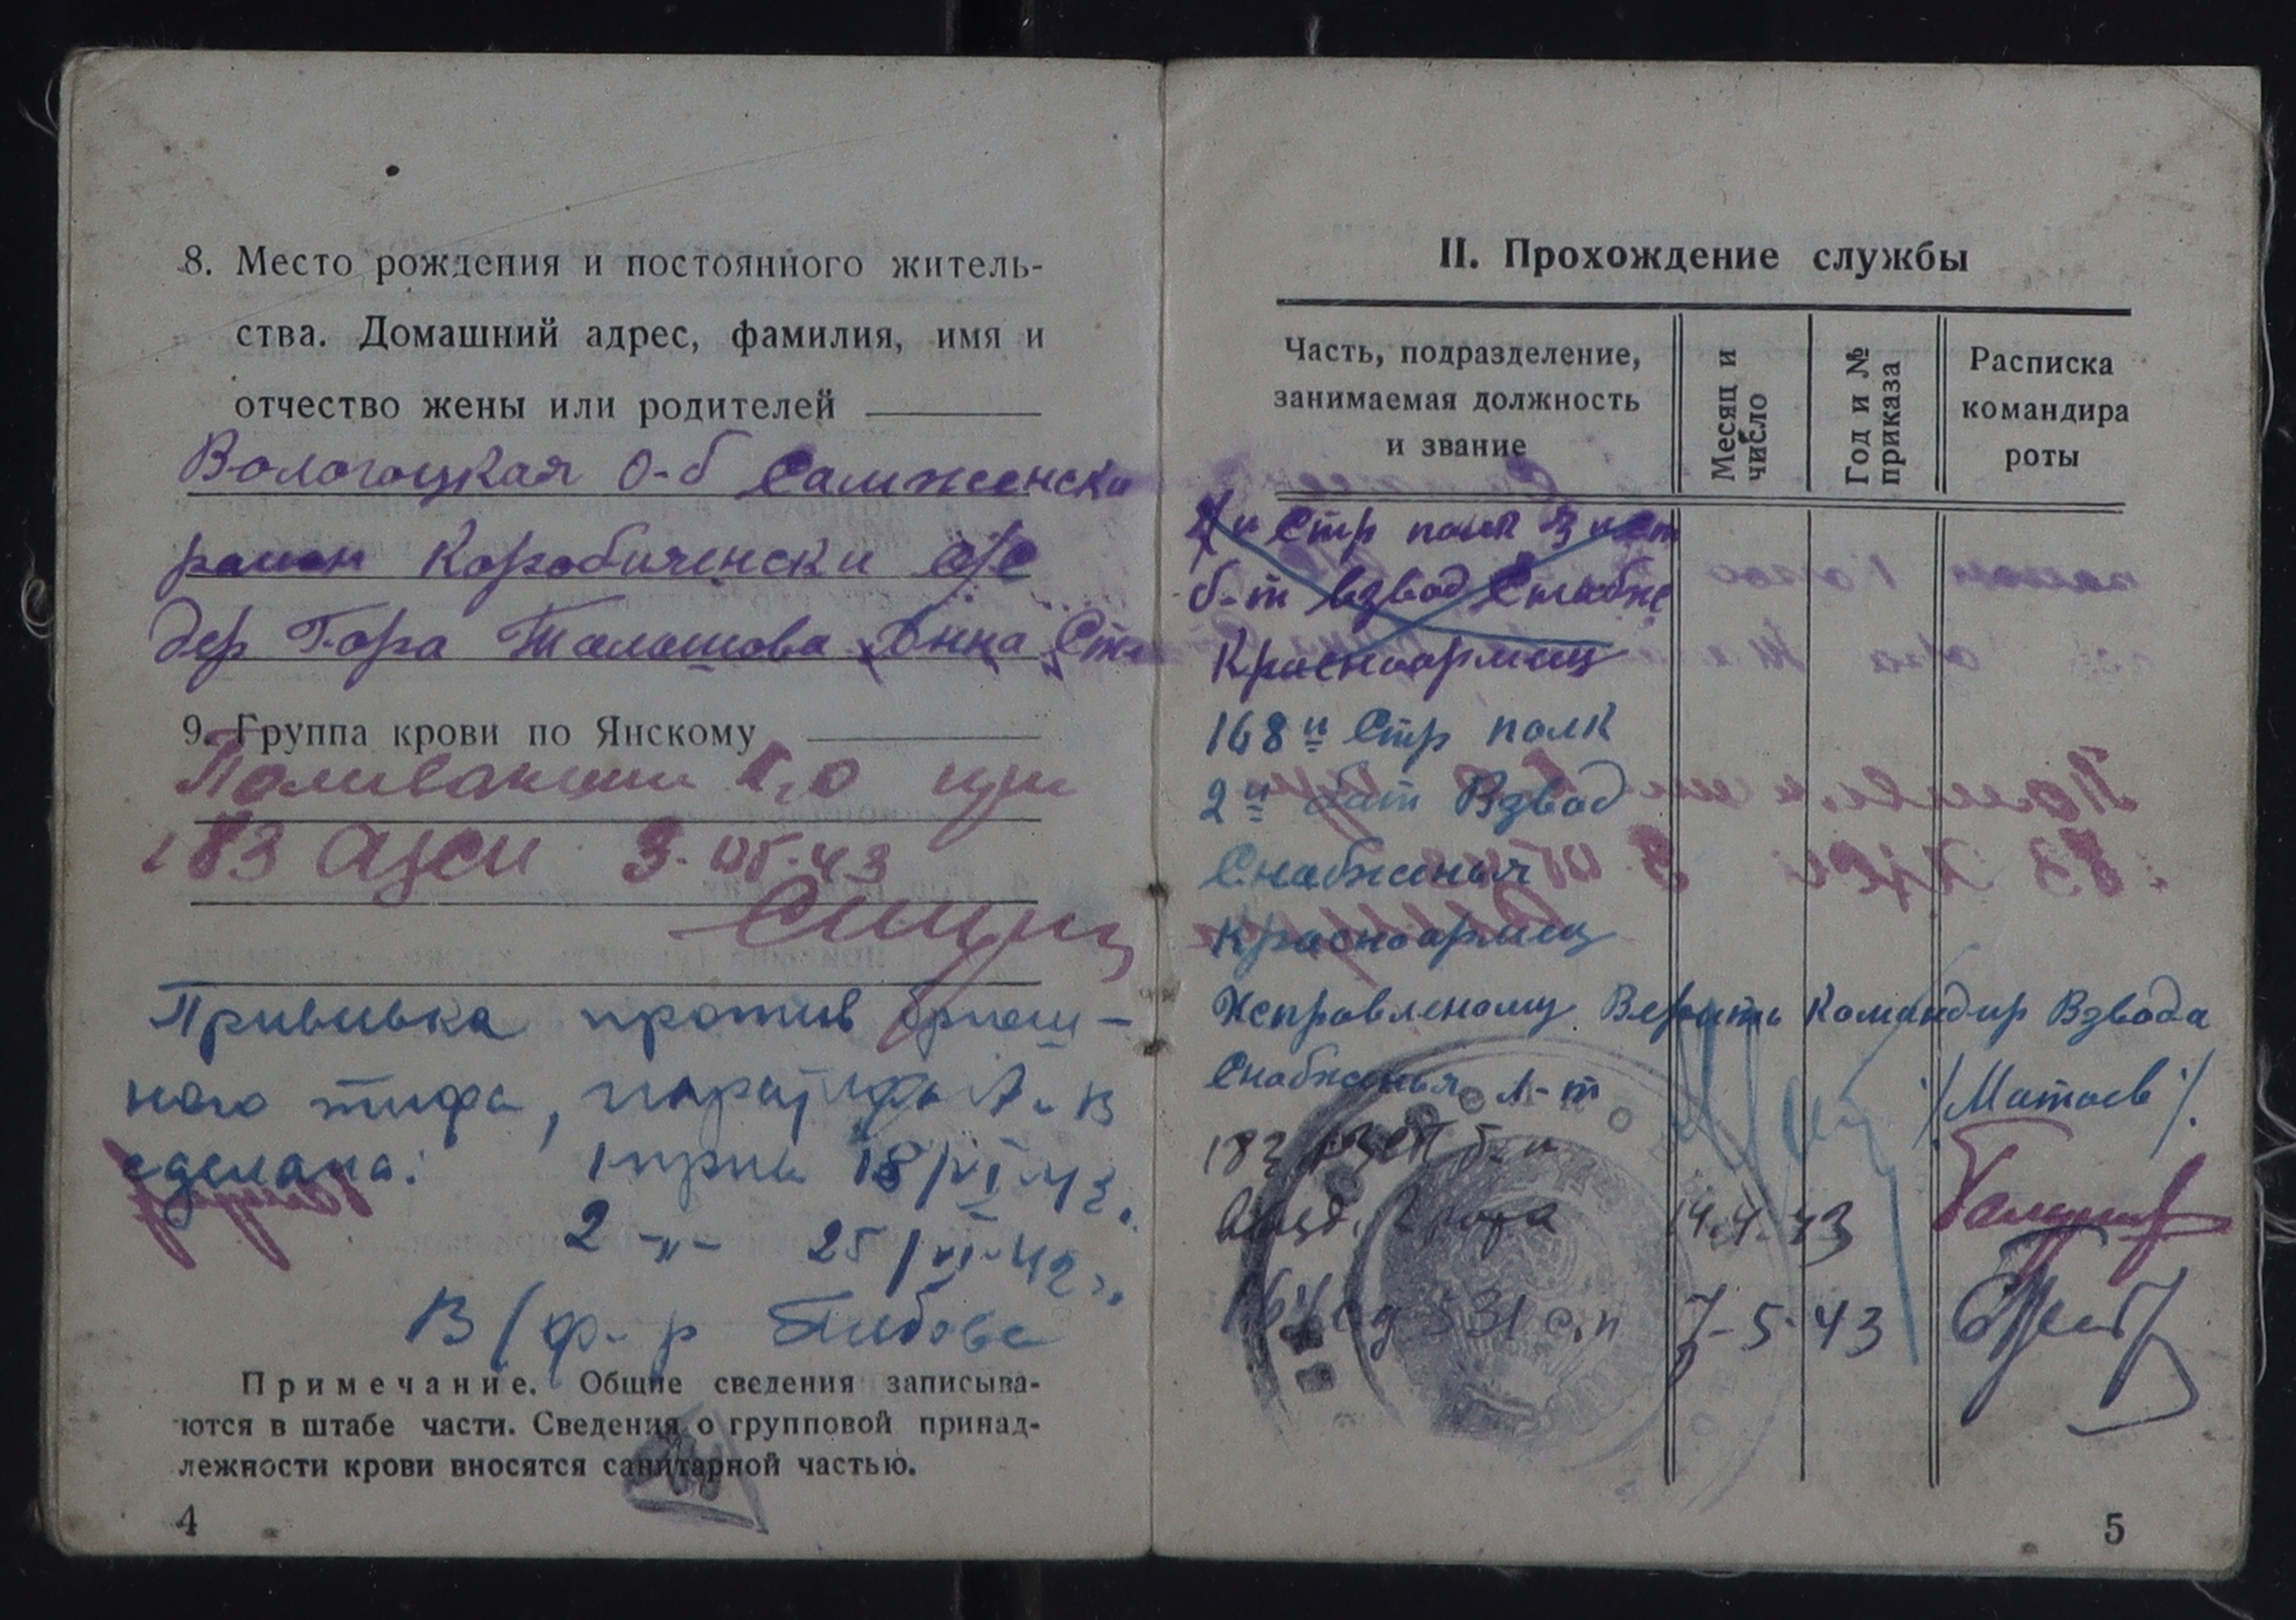 8. Место рождения и постоянного житель-
ства. Домашний адрес, фамилия, имя и
отчество жены или родителей
Вологоцкая о-б Самженски
раион Коробиченски с/с
дер Гора Талашова Анна Сте
9. Группа крови по Янскому
Поливакцин 1,0 при
183 АЗСП 3-IV-43
Прививка против брюш-
ного тифа, паратифа А и В
сделана: 1 прив 18/VI-43.
2 -"- 25/VI-42 г.
В/ф-р
Примечание. Общие сведения записыва-
ются в штабе части. Сведения о групповой принад-
лежности крови вносятся санитарной частью.
4
II. Прохождение службы
Часть, подразделение,
занимаемая должность
и звание
Месяц и
число
Год и №
приказа
Расписка
командира
роты
Стр полк
б-т взвод Снабже
Красноармиц
168й Стр полк
2й бат Взвод
Снабженья
Красноармиц
Исправленому Верить Командир Взвода
Снабженья л-т /Матоев/.
183
2 рота 14.4.43
531 с.п 7-5-43
5